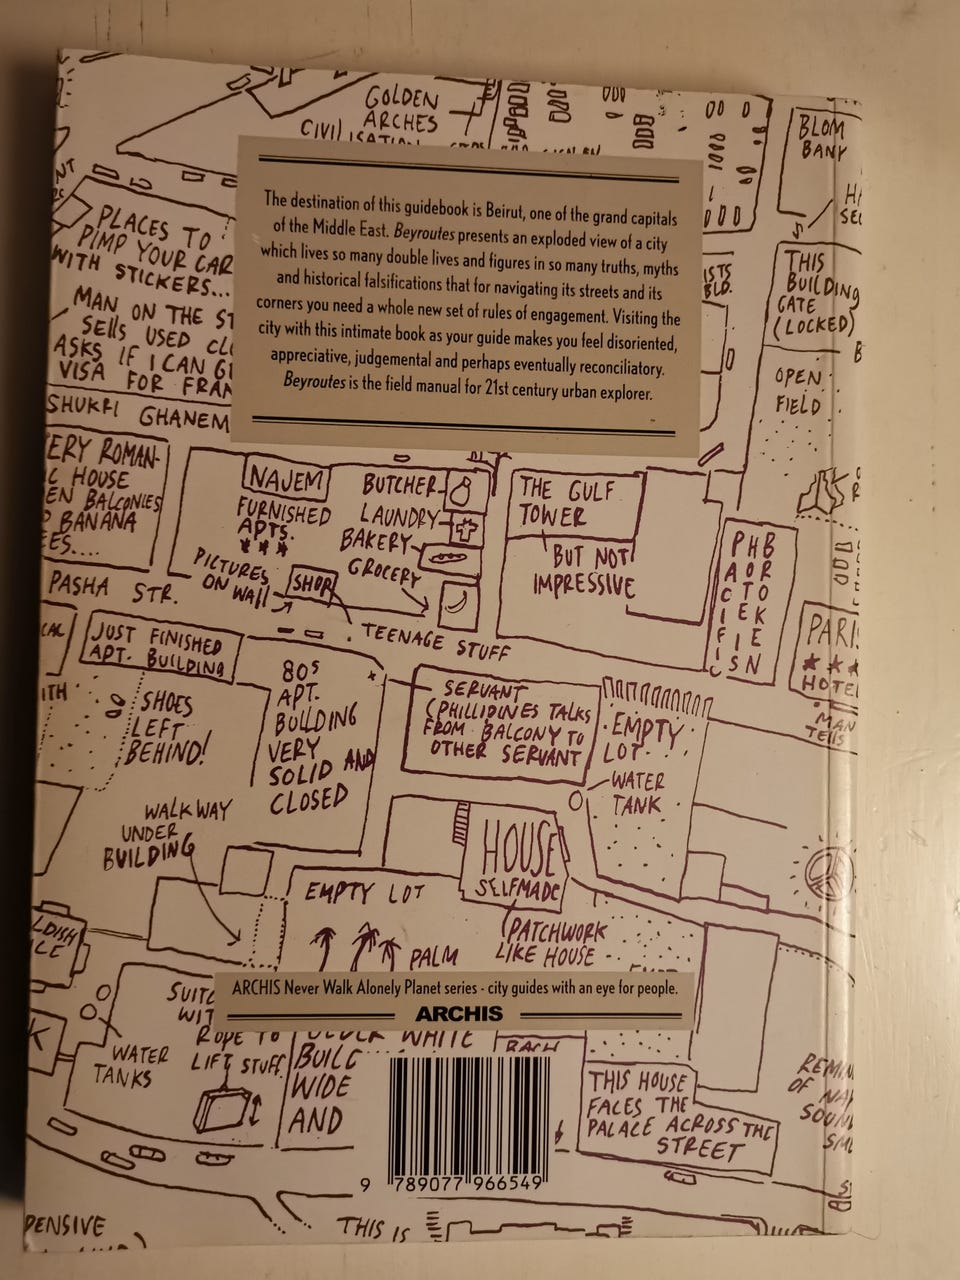 GOLDEN
ARCHES
BLOM
BANK
The destination of this guidebook is Beirut, one of the grand capitals
of the Middle East. Beyroutes presents an exploded view of a city
which lives so many double lives and figures in so many truths, myths
and historical falsifications that for navigating its streets and its
corners you need a whole new set of rules of engagement. Visiting the
city with this intimate book as your guide makes you feel disoriented,
appreciative, judgemental and perhaps eventually reconciliatory.
Beyroutes is the field manual for 21st century urban explorer.
PLACES TO
PIMP YOUR CAR
WITH STICKERS...
MAN ON THE ST
SELLS USED CL
ASKS IF I CAN GI
VISA FOR FRAN
THIS
BUILDING
GATE
(LOCKED)
OPEN
FIELD
SHUKRI GHANEM
ERY ROMAN-
C HOUSE
EN BALCONIES
BANANA
EES....
NAJEM
FURNISHED
APTS.
BUTCHER
LAUNDRY
BAKERY
GROCERY
PICTURES
ON WALL
SHOP
THE GULF
TOWER
BUT NOT
IMPRESSIVE
PACIFIC
HORTEIS
BOOKEN
PASHA STR.
TEENAGE STUFF
PARI
HOTEL
MAN
TELLS
JUST FINISHED
APT. BUILDING
SHOES
LEFT
BEHIND!
80S
APT.
BUILDING
VERY
SOLID AND
CLOSED
SERVANT
(PHILLIDINES TALKS
FROM BALCONY TO
OTHER SERVANT
EMPTY
LOT
WATER
TANK
WALKWAY
UNDER
BUILDING
HOUSE
SELFMADE
EMPTY LOT
PALM
PATCHWORK
LIKE HOUSE
ARCHIS Never Walk Alonely Planet series - city guides with an eye for people.
ARCHIS
ROPE TO
LIFT STUFF
WATER
TANKS
WHITE
BUILD
WIDE
AND
THIS HOUSE
FACES THE
PALACE ACROSS THE
STREET
9 789077 966549
PENSIVE
THIS IS